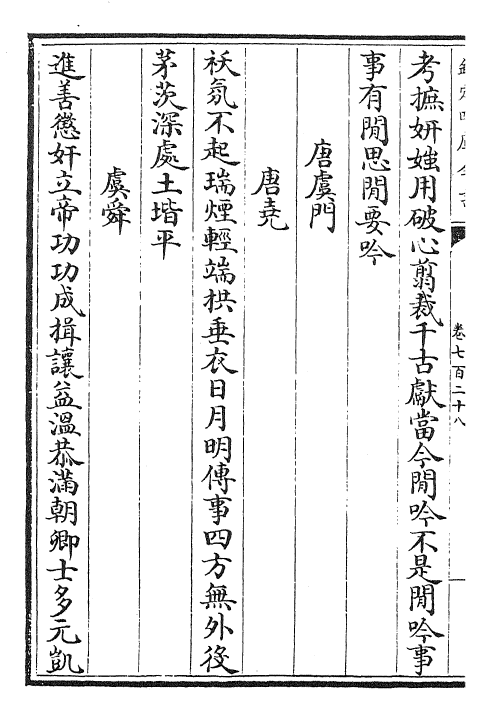 卷七百二十八
考摭妍媸用破心翦裁千古獻當今閒吟不是閒吟事
事有閒思閒要吟
唐虞門
唐堯
祅氛不起瑞煙輕端拱垂衣日月明傳事四方無外後
茅茨深處土堦平
虞舜
進善懲奸立帝功功成揖讓益溫恭滿朝卿士多元凱